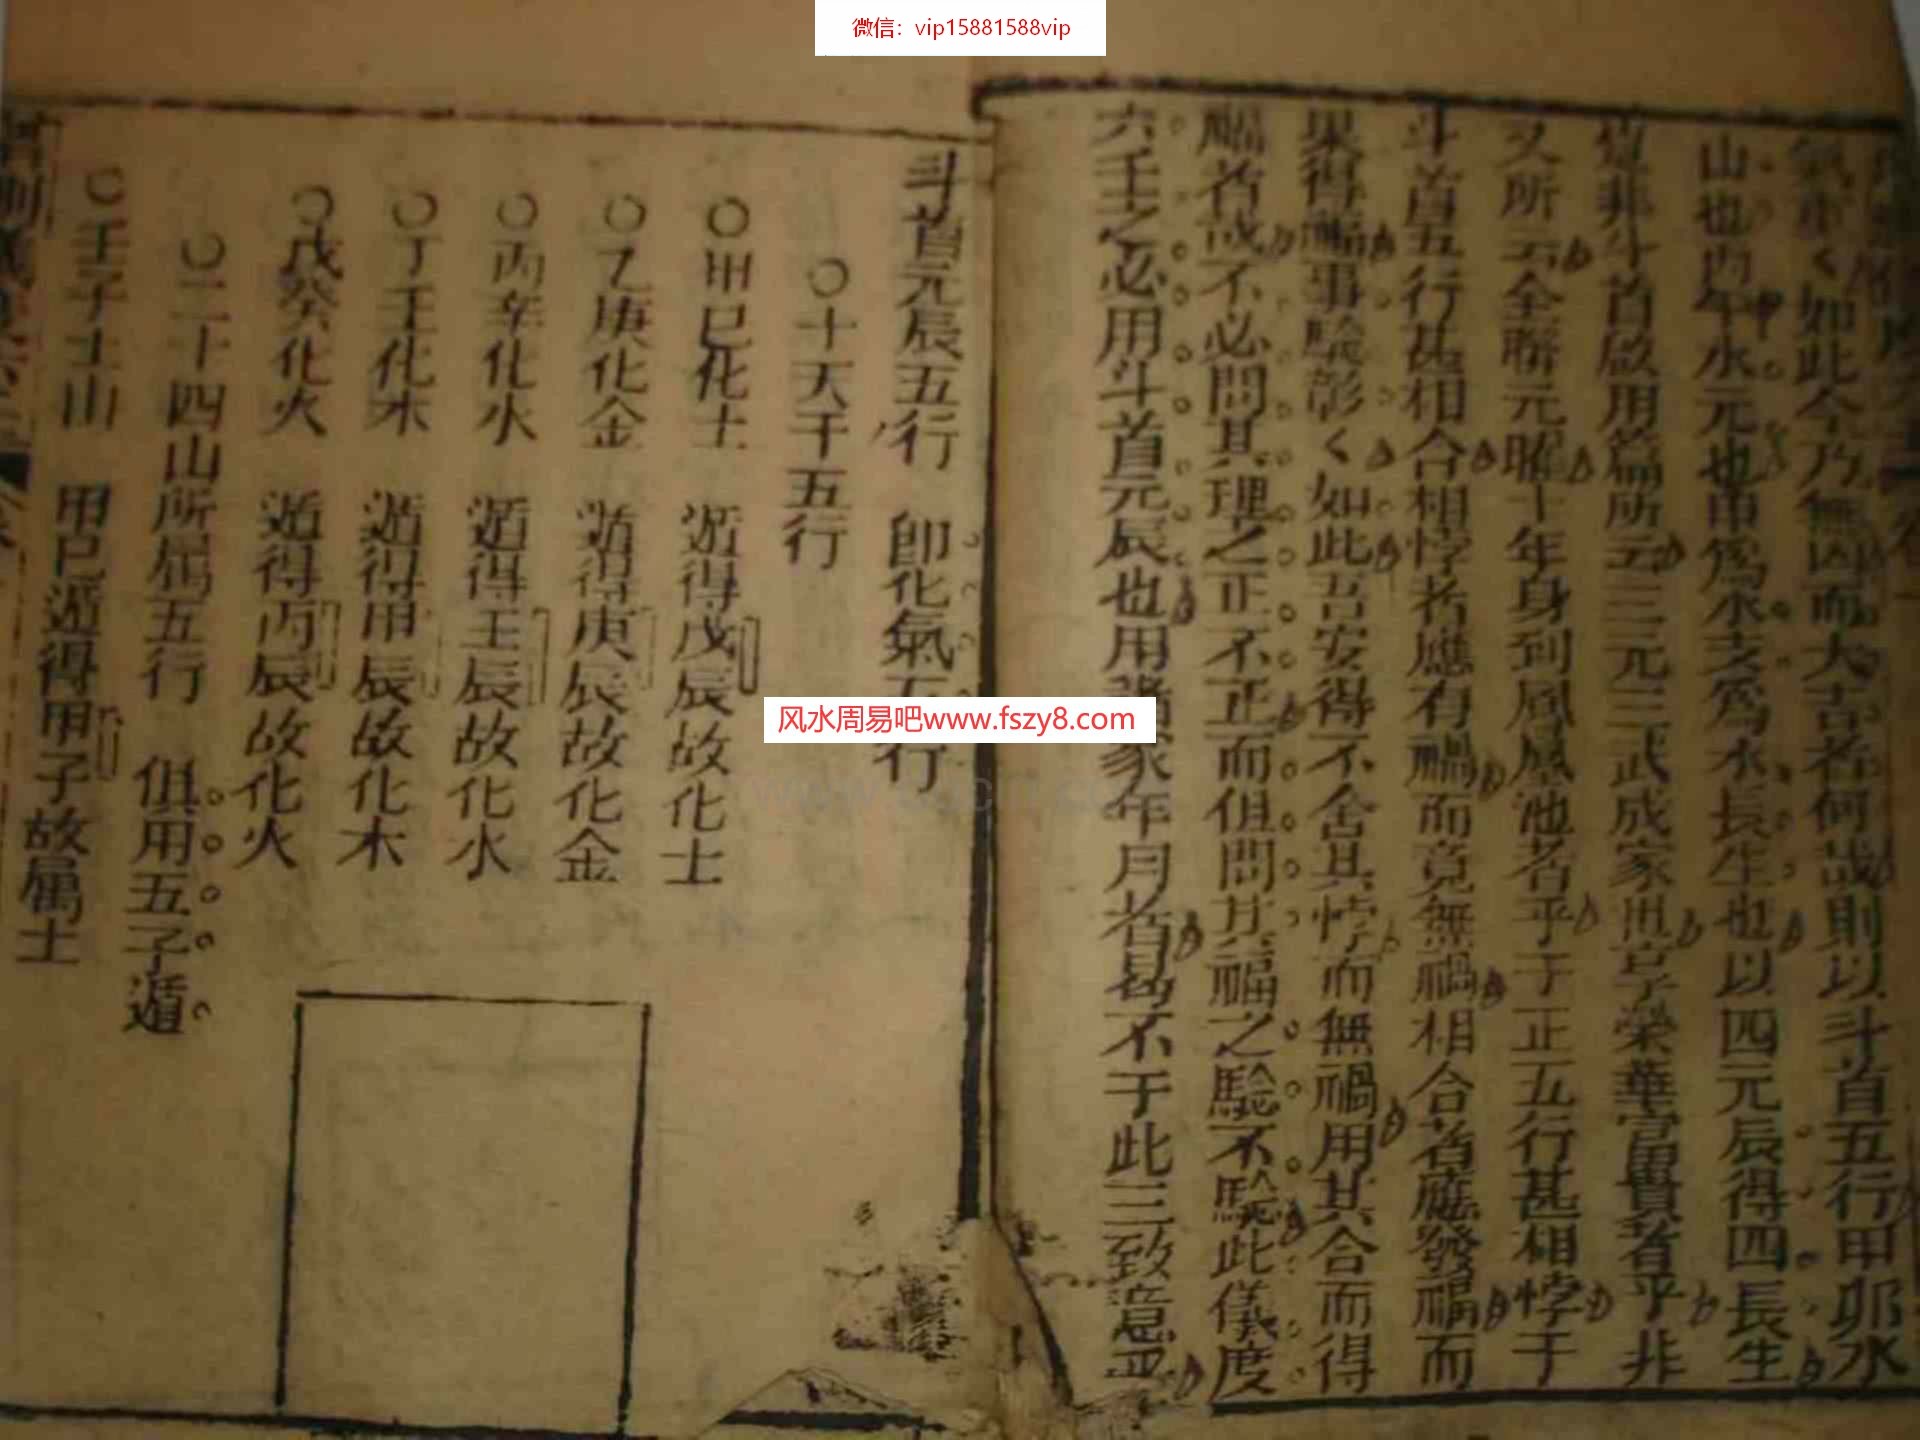 微信：vip15881588vip
氣重く如此今乃無凶而大吉者何哉則以斗首五行甲卯水
山也四年水元也申為水支為水長生也以四元辰得四長生
非斗首啟用篇所云三元三武成家世享榮華富貴者乎非
又所云全聯元曜十年身到鳳凰池者乎于正五行甚相悖于
斗首五行甚相合相悖者應有禍而竟無禍相合者應發福而
果得福事驗彰く如此吾安得不舍其悖而無禍用其合而得
福者或不必問其理之正不正而但問其福之驗不驗此儀度
六壬之必用斗首元辰也用諸家年月者曷不于此三致意焉
斗首元辰五行 即化氣五行
○十天干五行
○甲巳化土 遁得戊辰故化土
○乙庚化金 遁得庚辰故化金
○丙辛化水 遁得壬辰故化水
○丁壬化木 遁得甲辰故化木
○戊癸化火 遁得丙辰故化火
○二十四山所屬五行 俱用五子遁
○壬子土山 甲巳遁得甲子故屬土
风水周易吧www.fszy8.com